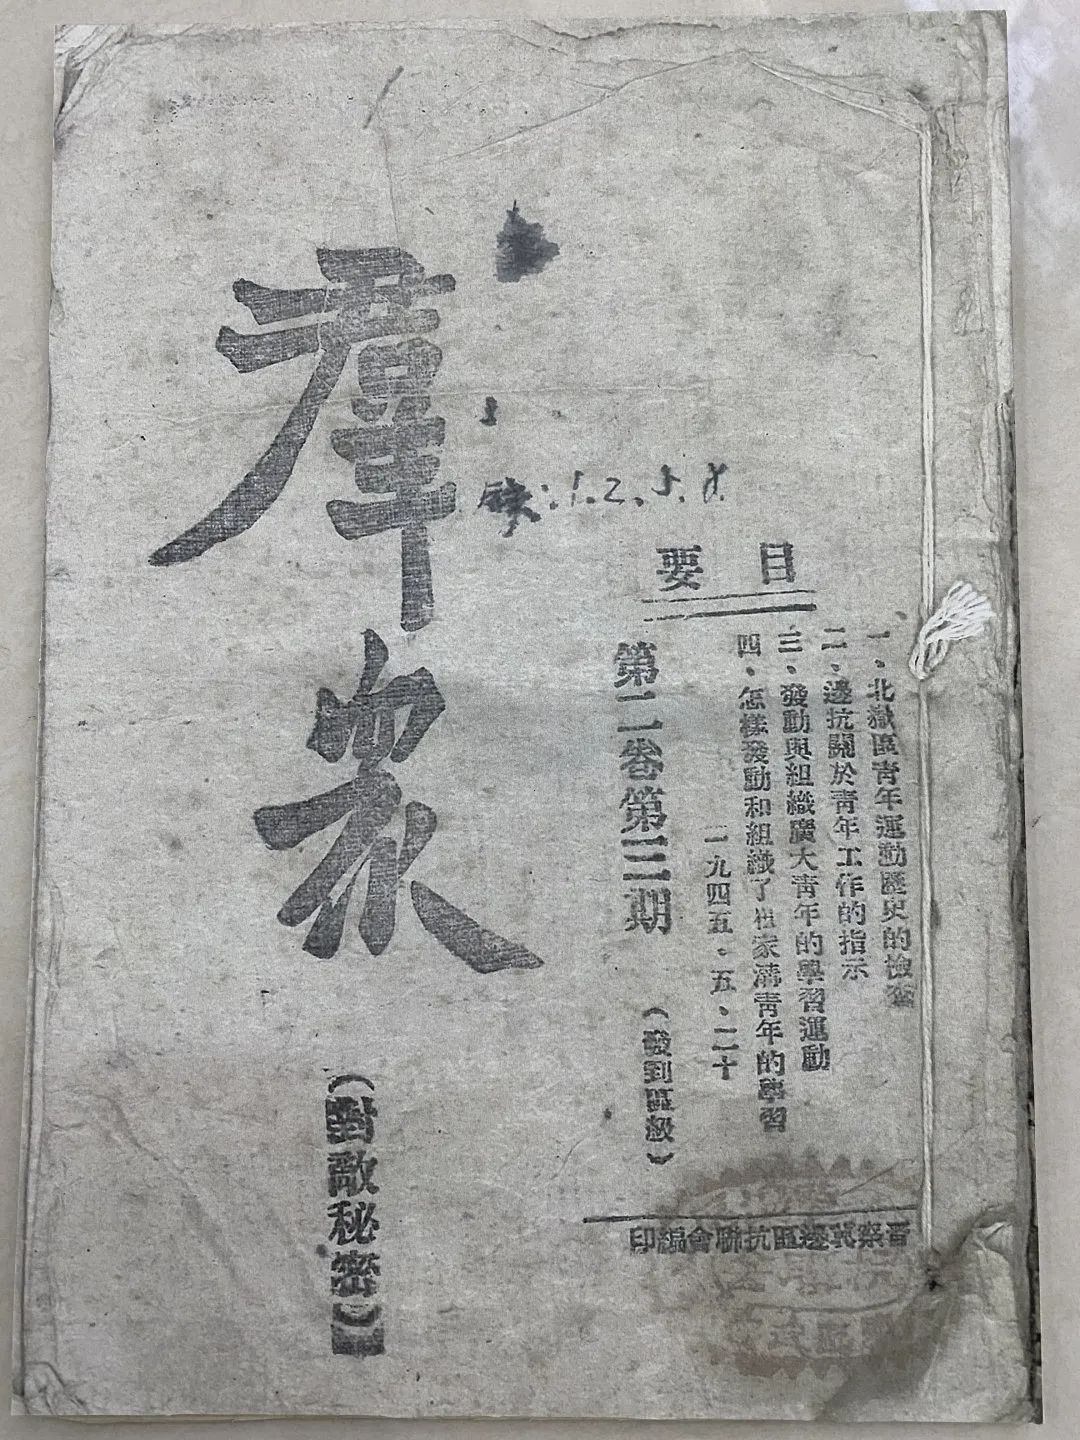 要目
一、北嶽區青年運動歷史的檢查
二、邊抗關於青年工作的指示
三、發動與組織廣大青年的學習運動
四、怎樣發動和組織了家溝青年的學習
一九四五。五、二十
第二卷第三期
(發到區級)
晉察冀邊區抗聯會編印
缺:1.2.5.8.
羣衆
(對敵秘密)